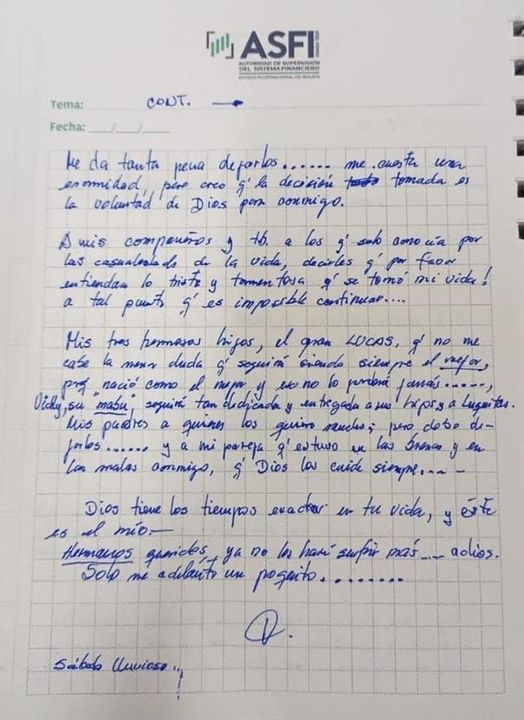 ASFI
AUTORIDAD DE SUPERVISIÓN
DEL SISTEMA FINANCIERO
ESTADO PLURINACIONAL DE BOLIVIA
Tema: CONT. →
Fecha: __/__/__
Me da tanta pena dejarlos...... me cuesta una
enormidad, pero creo q' la decisión tomada es
la voluntad de Dios para conmigo.
A mis compañeros y tb. a los q' solo conocía por
las casualidades de la vida, decirles q' por favor
entiendan lo triste y tormentosa q' se tornó mi vida!
a tal punto q' es imposible continuar....
Mis tres hermosos hijos, el gran LUCAS, q' no me
cabe la menor duda q' seguirá siendo siempre el mejor,
prq' nació como el mejor y eso no lo perderá jamás.....,
Vicky, su "mabu", seguirá tan dedicada y entregada a sus hijos y a Luquitas.
Mis padres a quienes los quiero mucho; pero debo de-
jarlos...... y a mi pareja q' estuvo en las buenas y en
las malas conmigo, q' Dios los cuide siempre....-
Dios tiene los tiempos exactos en tu vida, y éste
es el mío.-
Hermanos queridos, ya no los haré sufrir más ... adios.
Solo me adelanto un poquito........
Sábado lluvioso..